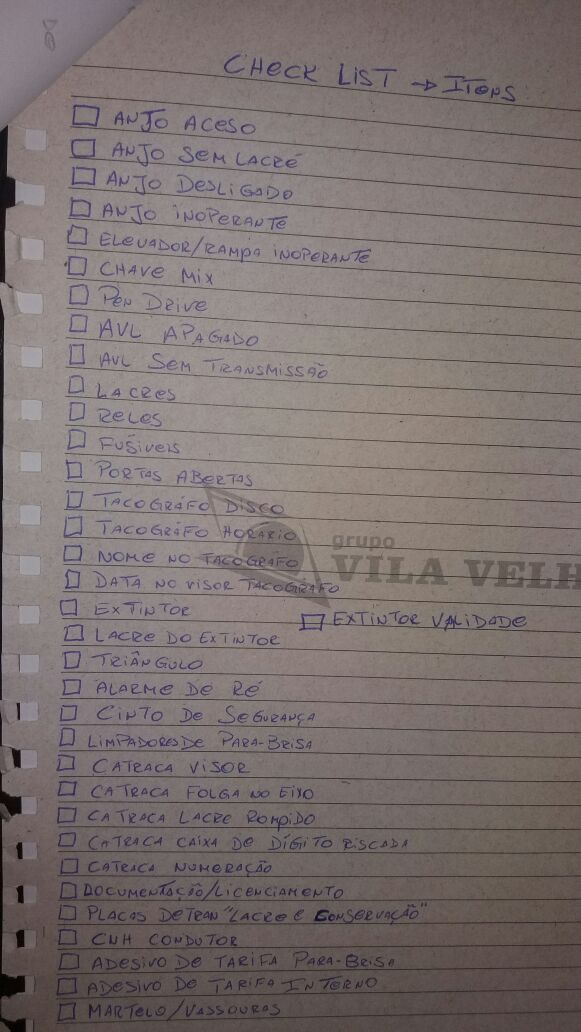 CHECK LIST → ITENS
ANJO ACESO
ANJO SEM LACRÉ
ANJO DESLIGADO
ANJO INOPERANTE
ELEVADOR/RAMPA INOPERANTE
CHAVE MIX
PEN DRIVE
AVL APAGADO
AVL SEM TRANSMISSÃO
LACRES
RELES
FUSÍVEIS
PORTAS ABERTAS
TACOGRÁFO DISCO
TACOGRÁFO HORARIO
NOME NO TACOGRÁFO
grupo
VILA VELH
DATA NO VISOR TACOGRÁFO
EXTINTOR
EXTINTOR VALIDADE
LACRE DO EXTINTOR
TRIÂNGULO
ALARME DE RÉ
CINTO DE SEGURANÇA
LIMPADORES DE PARA-BRISA
CATRACA VISOR
CATRACA FOLGA NO EIXO
CATRACA LACRE ROMPIDO
CATRACA CAIXA DE DÍGITO RISCADA
CATRACA NUMERAÇÃO
DOCUMENTAÇÃO/LICENCIAMENTO
PLACAS DETRAN "LACRE E CONSERVAÇÃO"
CNH CONDUTOR
ADESIVO DE TARIFA PARA-BRISA
ADESIVO DE TARIFA INTERNO
MARTELO/VASSOURAS